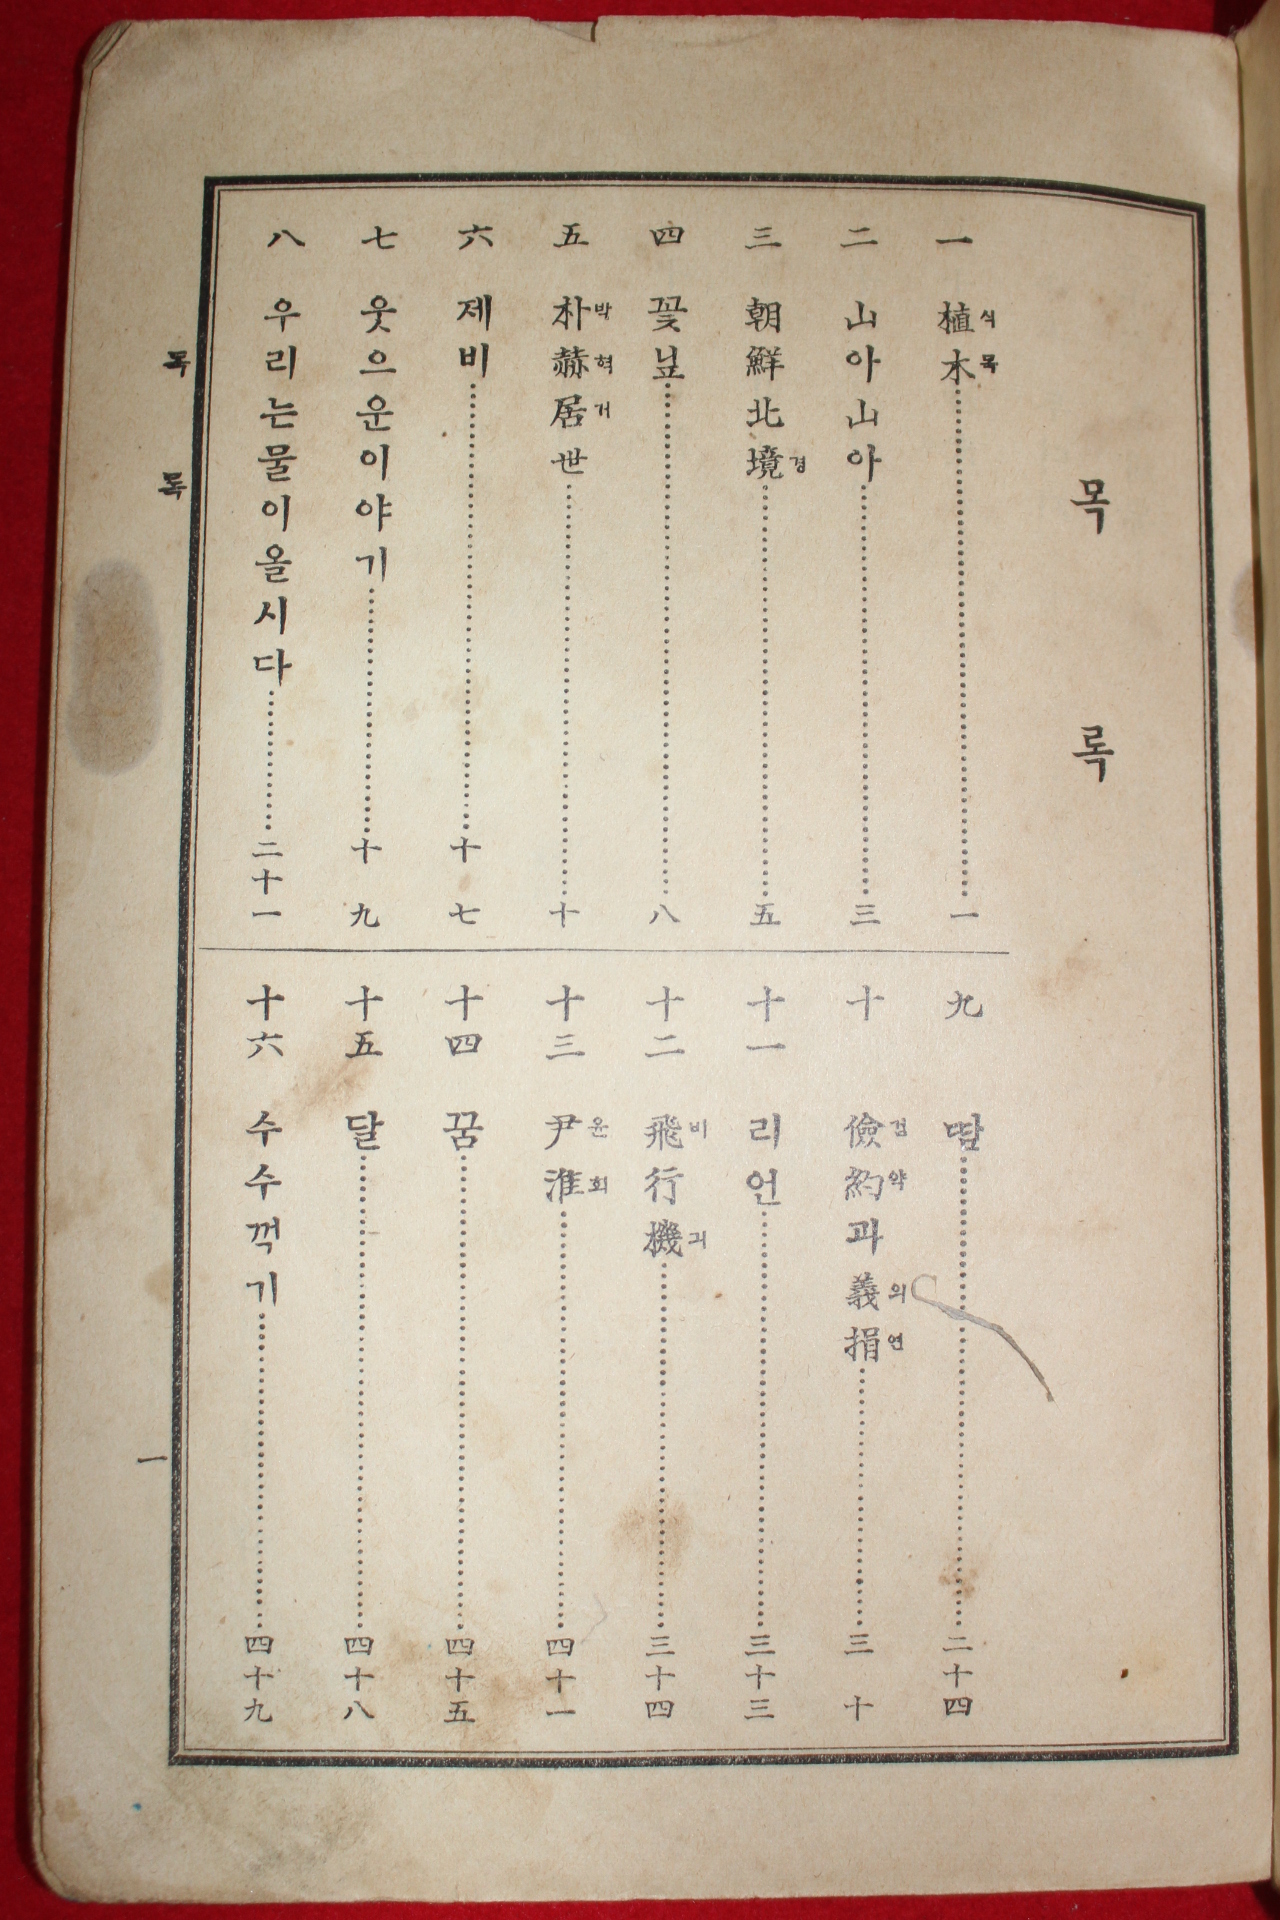 목록
一 植木 식목 一
二 山아山아 三
三 朝鮮北境 경 五
四 꽃닢 八
五 朴赫居世 박혁거 十
六 제비 十七
七 웃으운이야기 十九
八 우리는물이올시다 二十一
九 땀 二十四
十 儉約과義捐 검약의연 三十
十一 리언 三十三
十二 飛行機 비긔 三十四
十三 尹淮 윤회 四十一
十四 꿈 四十五
十五 달 四十八
十六 수수꺽기 四十九
목록
一